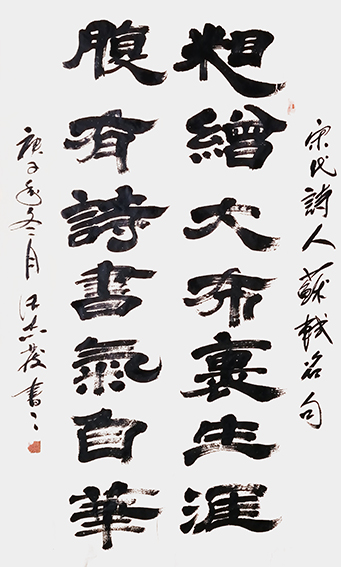 宋代詩人蘇軾名句
粗繒大布裹生涯
腹有詩書氣自華
庚子年冬月書